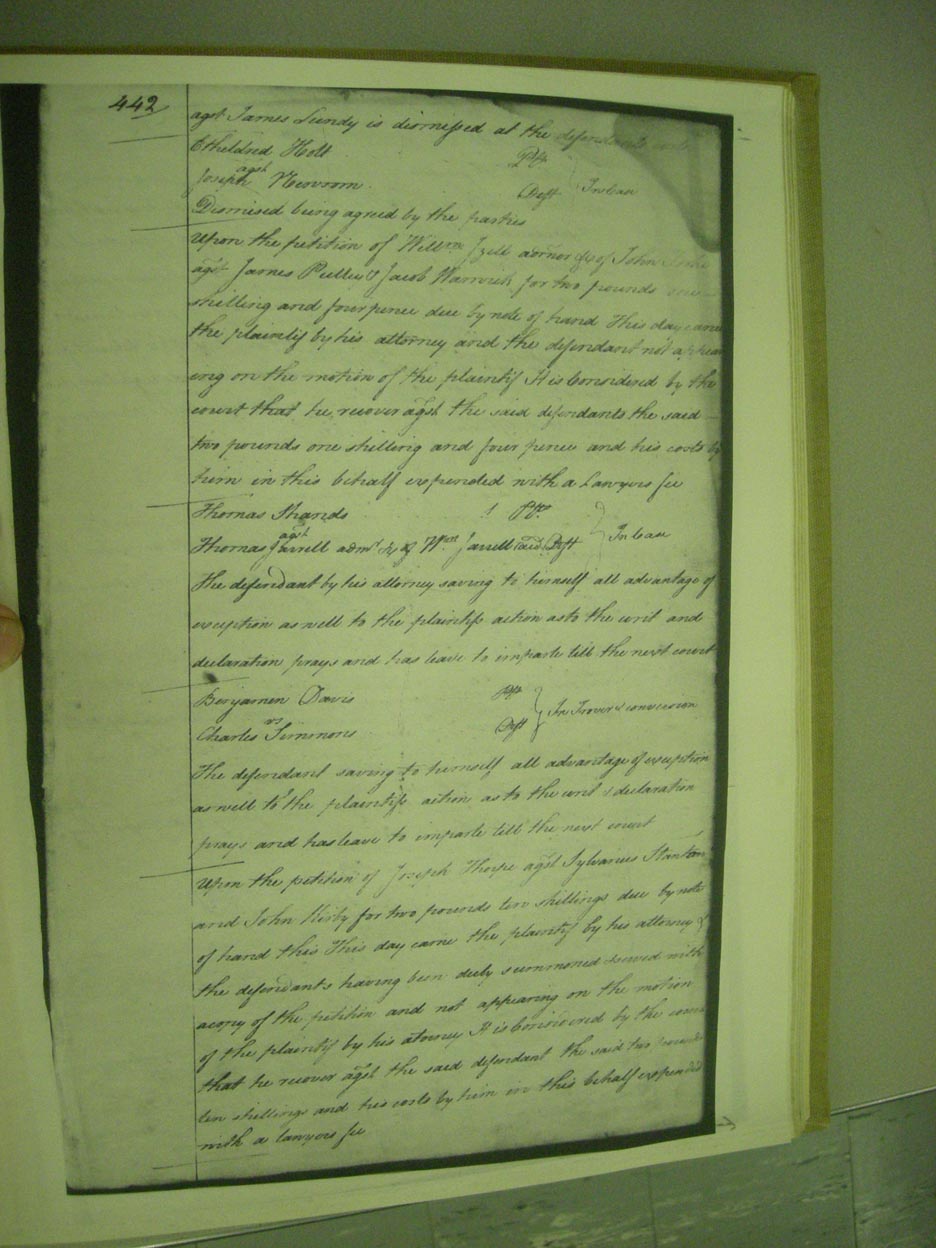 442
agst James Lundy is dismissed at the defendants costs
Etheldred Holt Pltf
agst
Joseph Newsom Deft In Case
Dismised being agreed by the parties
Upon the petition of Willm Izell admor &c of John
agst James Pullis & Jacob Warwick for two pounds one
shilling and four pence due by note of hand This day came
the plaintif by his attorney and the defendant not appear
ing on the motion of the plaintif It is Considered by the
court that he recover agst the said defendants the said
two pounds one shilling and four pence and his costs by
him in this behalf expended with a Lawyers fee
Thomas Shands Pltf
agst
Thomas Jarrell admr &c of Wm Jarrell Decd Deft In Case
The defendant by his attorney saving to himself all advantage of
exception as well to the plaintifs action as to the writ and
declaration prays and has leave to imparle till the next court
Benjamen Davis Pltf
vs
Charles Simmons Deft In Trover & conversion
The defendant saving to himself all advantage of exception
as well to the plaintifs action as to the writ & declaration
prays and has leave to imparle till the next court
Upon the petition of Joseph Thorpe agst Sylvanus Stanton
and John Kirby for two pounds ten shillings due by note
of hand this This day came the plaintif by his attorney &
the defendants having been duly summoned served with
acopy of the petition and not appearing on the motion
of the plaintif by his atorney It is Considered by the court
that he recover agst the said defendant the said two pounds
ten shillings and his costs by him in this behalf expended
with a lawyers fee